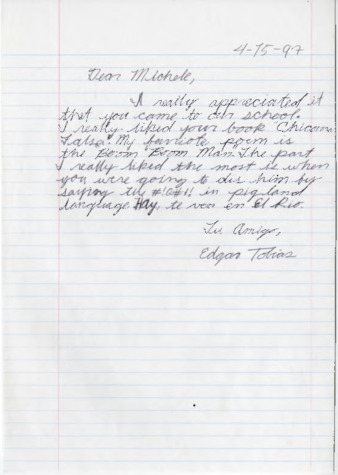 4-15-97
Dear Michele,
I really appreciated it
that you came to our school.
I really liked your book Chicana
Falsa. My favorite poem is
the Boom Boom Man. The part
I really liked the most is when
you were going to dis him by
saying in pig land
language Hay te veo en El Rio.
Tu Amigo,
Edgar Tobias